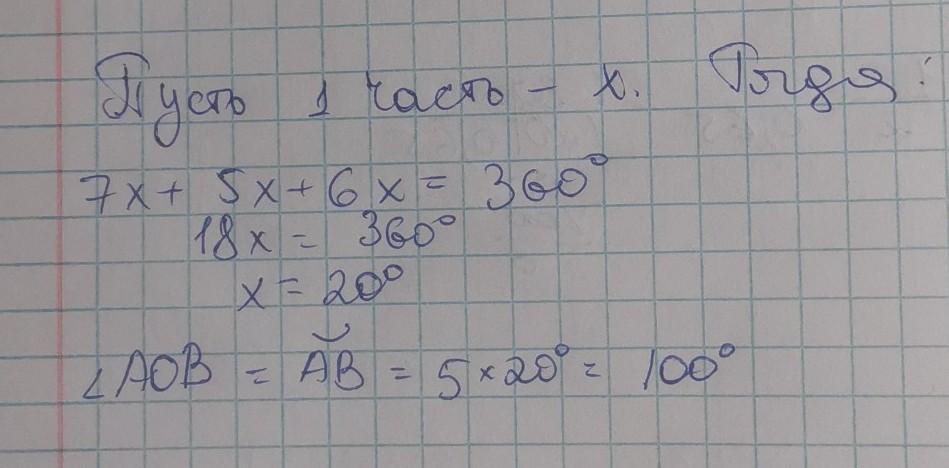 Пусть 1 часть – x. Тогда:
7x + 5x + 6x = 360°
18x = 360°
x = 20°
∠AOB = ◡AB = 5 × 20° = 100°